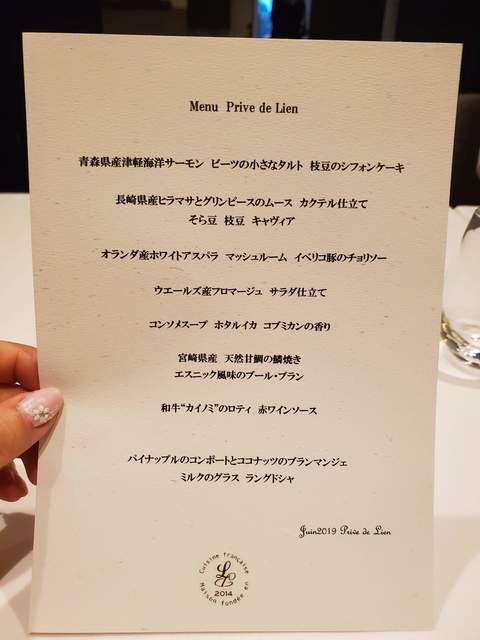 Menu Prive de Lien
青森県産津軽海洋サーモン ビーツの小さなタルト 枝豆のシフォンケーキ
長崎県産ヒラマサとグリンピースのムース カクテル仕立て
そら豆 枝豆 キャヴィア
オランダ産ホワイトアスパラ マッシュルーム イベリコ豚のチョリソー
ウエールズ産フロマージュ サラダ仕立て
コンソメスープ ホタルイカ コブミカンの香り
宮崎県産 天然甘鯛の鱗焼き
エスニック風味のブール・ブラン
和牛“カイノミ”のロティ 赤ワインソース
パイナップルのコンポートとココナッツのブランマンジェ
ミルクのグラス ラングドシャ
Juin2019 Prive de Lien
Cuisine française
2014
Maison fondée en